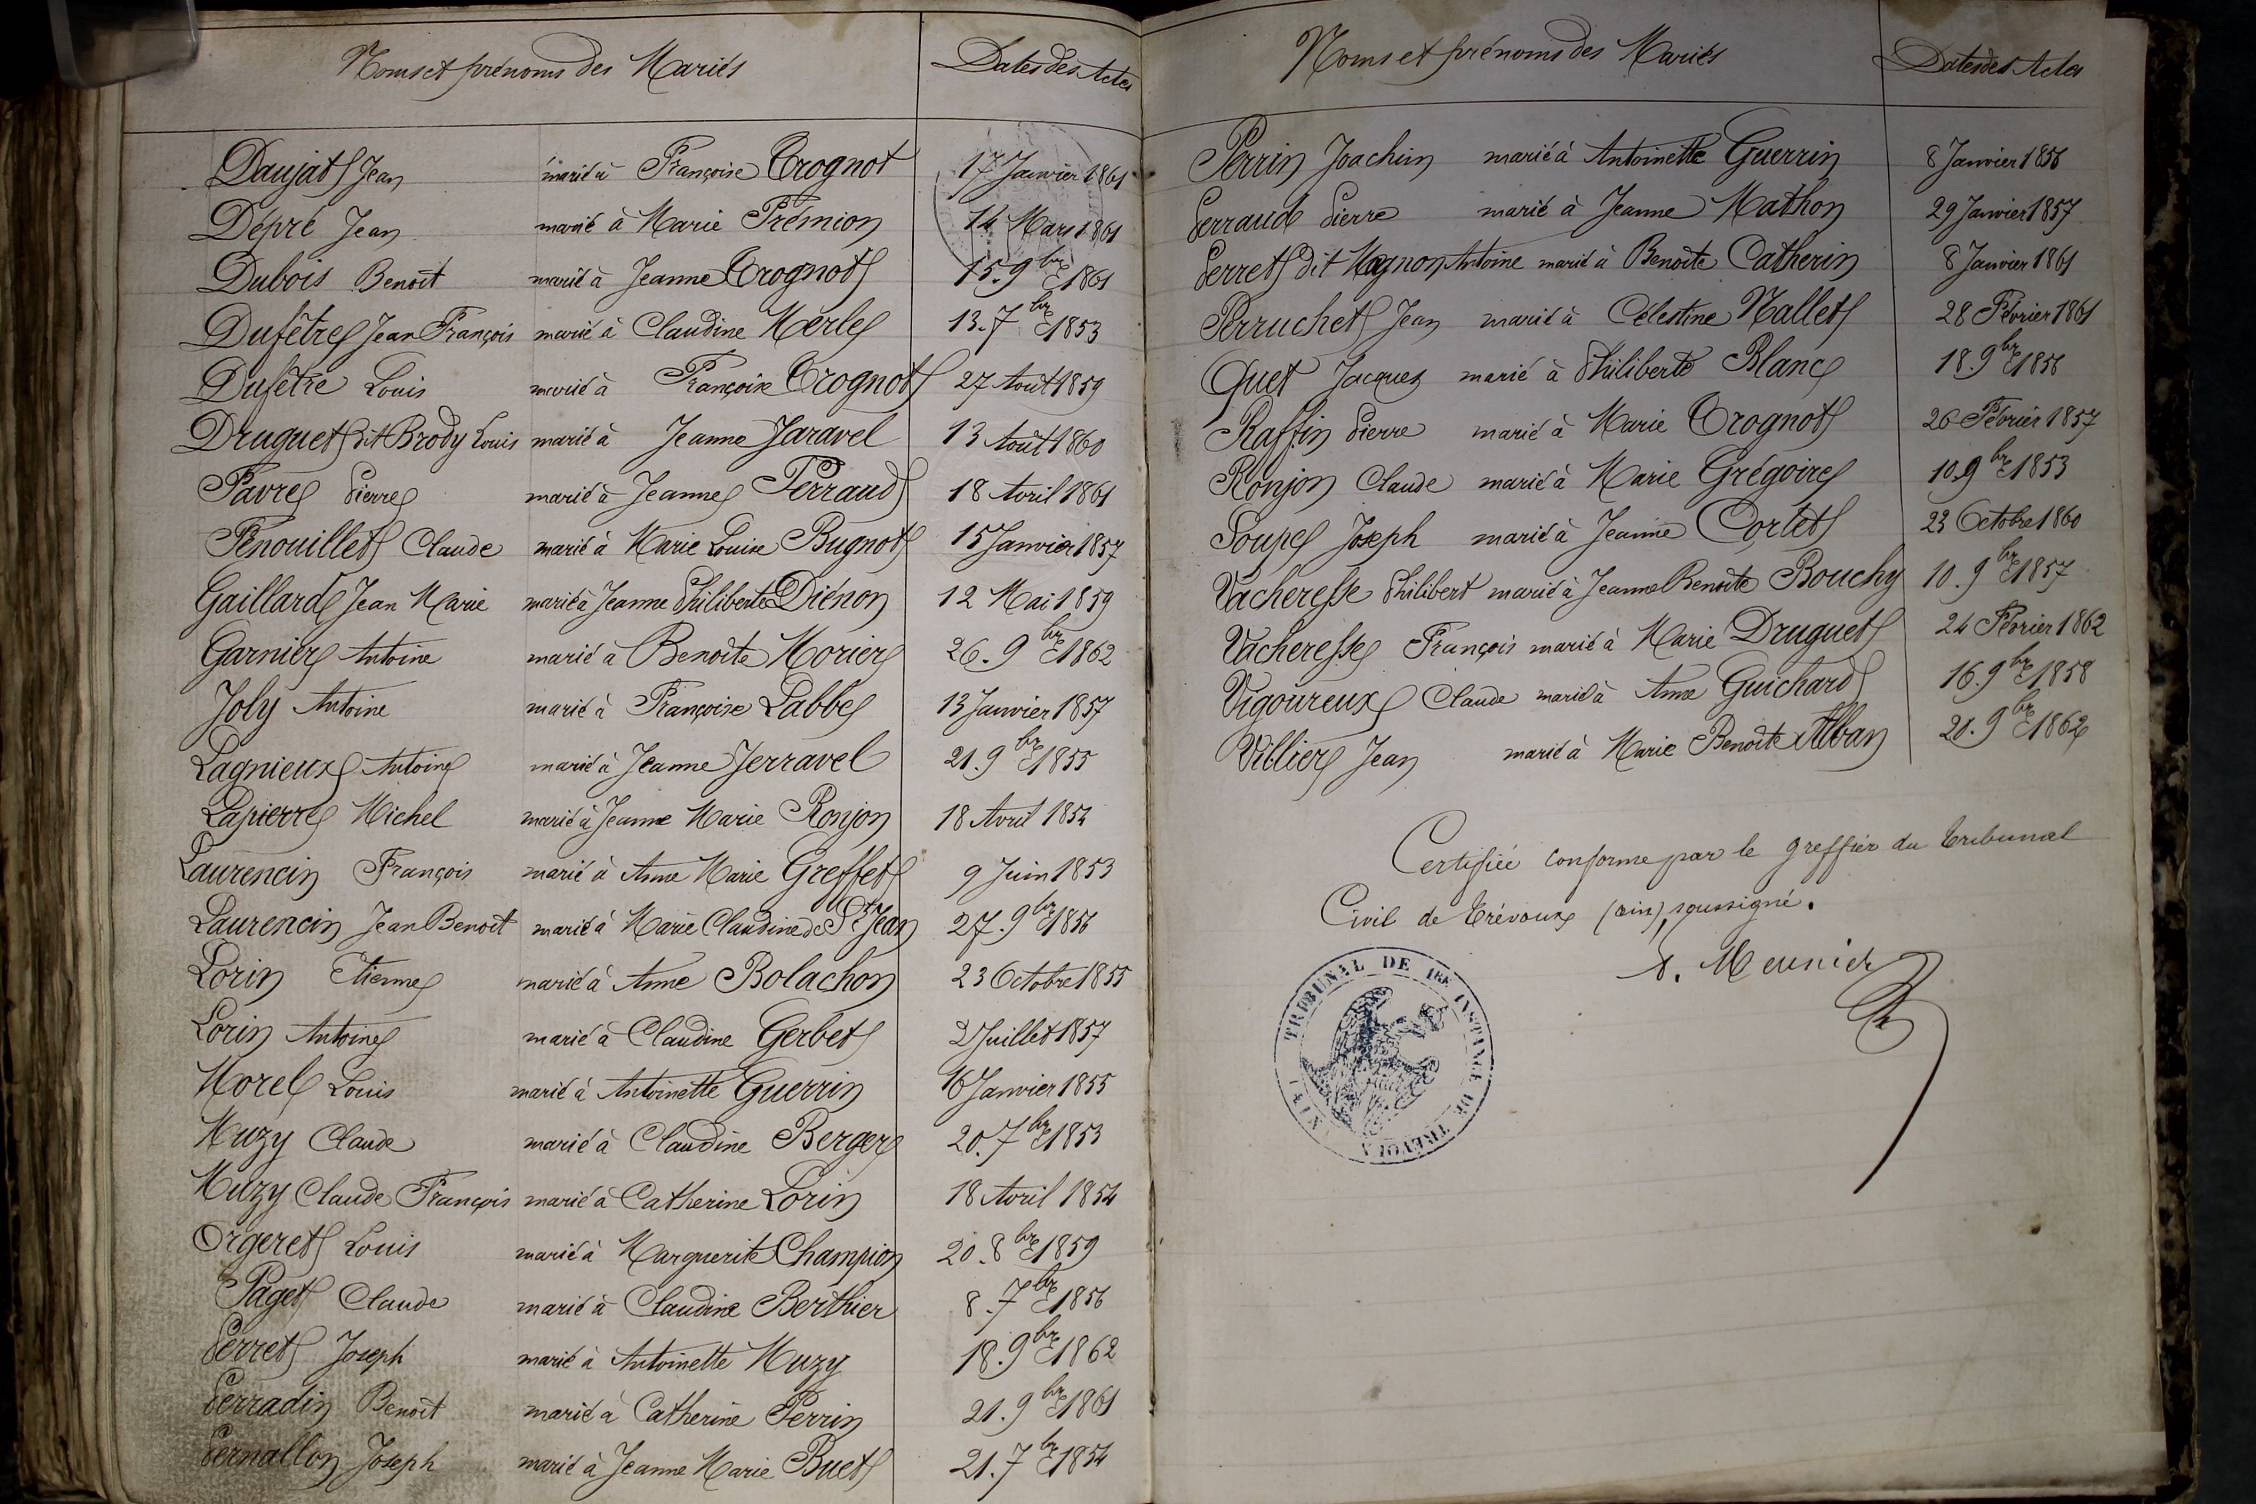 Noms et prénoms des Mariés Dates des Actes
Daujat Jean marié à Françoise Trognot 17 Janvier 1861
Dépré Jean marié à Marie Frémion 14 Mars 1861
Dubois Benoît marié à Jeanne Trognot 15. 9bre 1861
Dufêtre Jean François marié à Claudine Merle 13. 7bre 1853
Dufêtre Louis marié à Françoise Trognot 27 Août 1859
Druguet dit Brody Louis marié à Jeanne Jaravel 13 Août 1860
Favre Pierre marié à Jeanne Perraud 18 Avril 1861
Fenouillet Claude marié à Marie Louise Bugnot 15 Janvier 1857
Gaillard Jean Marie marié à Jeanne Philiberte Diénon 12 Mai 1859
Garnier Antoine marié à Benoîte Morier 26. 9bre 1862
Joly Antoine marié à Françoise Labbe 13 Janvier 1857
Lagnieux Antoine marié à Jeanne Jerravel 21. 9bre 1855
Lapierre Michel marié à Jeanne Marie Ronjon 18 Avril 1854
Laurencin François marié à Anne Marie Greffet 9 Juin 1853
Laurencin Jean Benoît marié à Marie Claudine de St Jean 27. 9bre 1856
Lorin Etienne marié à Anne Bolachon 23 Octobre 1855
Lorin Antoine marié à Claudine Gerbet 2 Juillet 1857
Morel Louis marié à Antoinette Guerrin 16 Janvier 1855
Muzy Claude marié à Claudine Berger 20. 7bre 1853
Muzy Claude François marié à Catherine Lorin 18 Avril 1854
Orgeret Louis marié à Marguerite Champion 20. 8bre 1859
Paget Claude marié à Claudine Berthier 8. 7bre 1856
Perret Joseph marié à Antoinette Muzy 18. 9bre 1862
Perradin Benoît marié à Catherine Perrin 21. 9bre 1861
Pernallon Joseph marié à Jeanne Marie Buet 21. 7bre 1854
Noms et prénoms des Mariés Dates des Actes
Perrin Joachim marié à Antoinette Guerrin 8 Janvier 1856
Perraud Pierre marié à Jeanne Mathon 29 Janvier 1857
Perret dit Magnon Antoine marié à Benoîte Catherin 8 Janvier 1861
Perruchet Jean marié à Célestine Nallet 28 Février 1861
Quet Jacques marié à Philiberte Blanc 18. 9bre 1856
Raffin Pierre marié à Marie Trognot 26 Février 1857
Ronjon Claude marié à Marie Grégoire 10. 9bre 1853
Soupe Joseph marié à Jeanne Cortet 23 Octobre 1860
Vacheresse Philibert marié à Jeanne Benoîte Bouchy 10. 9bre 1857
Vacheresse François marié à Marie Druguet 24 Février 1862
Vigoureux Claude marié à Anne Guichard 16. 9bre 1858
Villier Jean marié à Marie Benoîte Alban 20. 9bre 1862
Certifiée conforme par le greffier du tribunal
Civil de Trévoux (ain), soussigné.
Meunier
TRIBUNAL DE 1RE INSTANCE DE TRÉVOUX
(AIN)